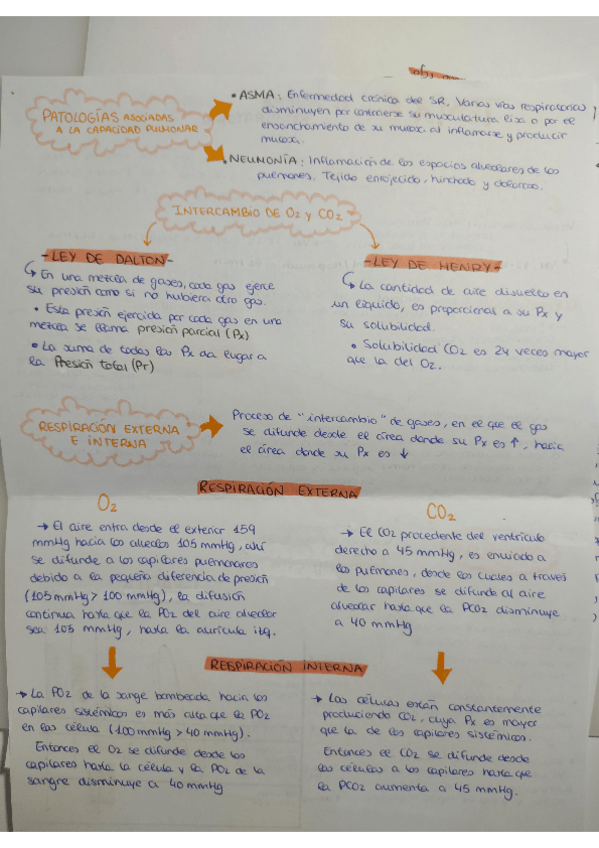 PATOLOGÍAS ASOCIADAS
A LA CAPACIDAD PULMONAR
• ASMA: Enfermedad crónica del SR. Varias vías respiratorias
disminuyen por contraerse su musculatura lisa o por el
ensanchamiento de su mucosa al inflamarse y producir
mucosa.
• NEUMONÍA: Inflamación de los espacios alveolares de los
pulmones. Tejido enrojecido, hinchado y doloroso.
INTERCAMBIO DE O2 y CO2
- LEY DE DALTON -
En una mezcla de gases, cada gas ejerce
su presión como si no hubiera otro gas.
• Esta presión ejercida por cada gas en una
mezcla se llama presión parcial (Px)
• La suma de todas las Px da lugar a
la Presión total (PT)
- LEY DE HENRY -
La cantidad de aire disuelto en
un líquido, es proporcional a su Px y
su solubilidad.
• Solubilidad CO2 es 24 veces mayor
que la del O2.
RESPIRACIÓN EXTERNA
E INTERNA
Proceso de "intercambio" de gases, en el que el gas
se difunde desde el área donde su Px es ↑, hacia
el área donde su Px es ↓
RESPIRACIÓN EXTERNA
O2
→ El aire entra desde el exterior 159
mmHg hacia los alveolos 105 mmHg, ahí
se difunde a los capilares pulmonares
debido a la pequeña diferencia de presión
(105 mmHg > 100 mmHg), la difusión
continua hasta que la PO2 del aire alveolar
sea 105 mmHg, hasta la aurícula izq.
CO2
→ El CO2 procedente del ventrículo
derecho a 45 mmHg, es enviado a
los pulmones, desde los cuales a través
de los capilares se difunde al aire
alveolar hasta que la PCO2 disminuye
a 40 mmHg
RESPIRACIÓN INTERNA
→ La PO2 de la sange bombeada hacia los
capilares sistémicos es más alta que la PO2
en las célula (100 mmHg > 40 mmHg).
Entonces el O2 se difunde desde los
capilares hasta la célula y la PO2 de la
sangre disminuye a 40 mmHg
→ Las células están constantemente
produciendo CO2, cuya Px es mayor
que la de los capilares sistémicos.
Entonces el CO2 se difunde desde
las células a los capilares hasta que
la PCO2 aumenta a 45 mmHg.